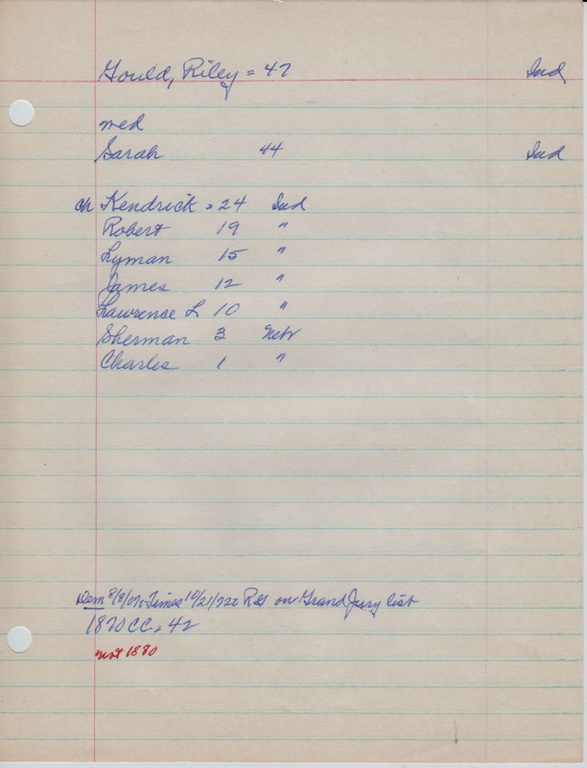 Gould, Riley = 47 Ind
med
Sarah 44 Ind
ch Kendrick = 24 Ind
Robert 19 "
Lyman 15 "
James 12 "
Lawrence L 10 "
Sherman 3 Nebr
Charles 1 "
Dem Times 10/21/72 RG on Grand Jury list
1870 CC, 42
not 1880